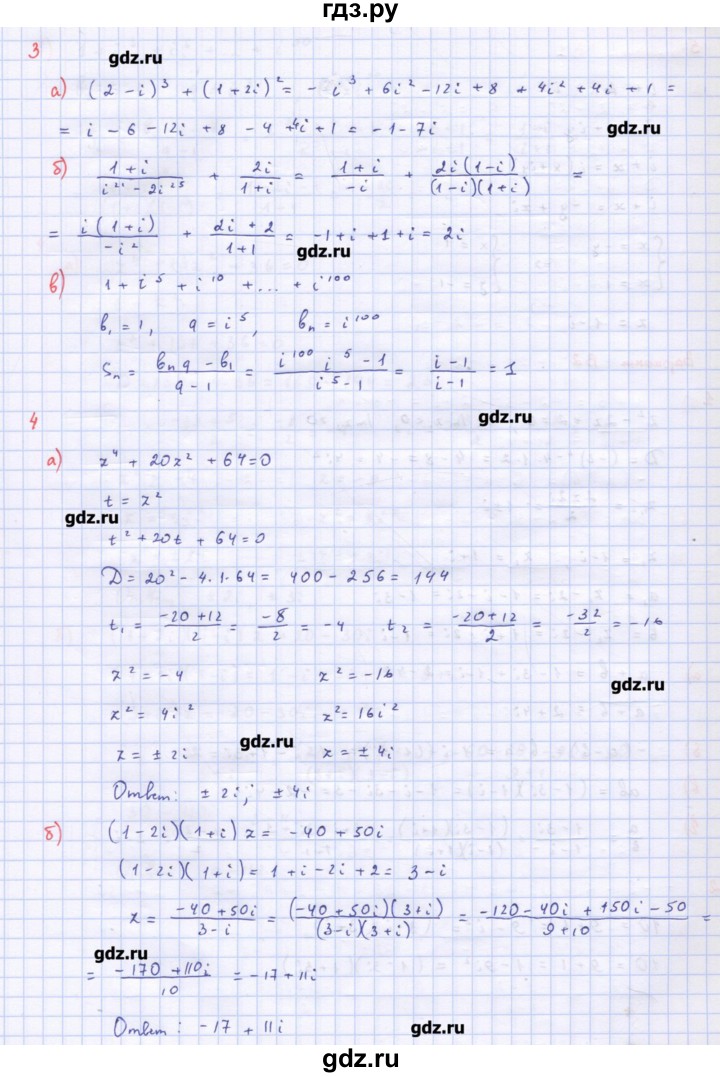 гдз.ру
gdz.ru
3
а) (2 - i)³ + (1 + 2i)² = - i³ + 6i² - 12i + 8 + 4i² + 4i + 1 =
= i - 6 - 12i + 8 - 4 + 4i + 1 = -1 - 7i
gdz.ru
б) (1 + i)/(i²¹ - 2i²⁵) + 2i/(1 + i) = (1 + i)/(-i) + (2i(1 - i))/((1 - i)(1 + i)) =
= (i(1 + i))/(-i²) + (2i + 2)/(1 + 1) = -1 + i + 1 + i = 2i
gdz.ru
в) 1 + i⁵ + i¹⁰ + ... + i¹⁰⁰
b₁ = 1, q = i⁵, bₙ = i¹⁰⁰
Sₙ = (bₙq - b₁)/(q - 1) = (i¹⁰⁰ i⁵ - 1)/(i⁵ - 1) = (i - 1)/(i - 1) = 1
gdz.ru
4
а) z⁴ + 20z² + 64 = 0
t = z²
gdz.ru
t² + 20t + 64 = 0
D = 20² - 4·1·64 = 400 - 256 = 144
t₁ = (-20 + 12)/2 = (-8)/2 = -4 t₂ = (-20 + 12)/2 = (-32)/2 = -16
z² = -4 z² = -16
gdz.ru
z² = 4i² z² = 16i²
gdz.ru
z = ± 2i z = ± 4i
Ответ: ± 2i; ± 4i
б) (1 - 2i)(1 + i) z = -40 + 50i
(1 - 2i)(1 + i) = 1 + i - 2i + 2 = 3 - i
z = (-40 + 50i)/(3 - i) = ((-40 + 50i)(3 + i))/((3 - i)(3 + i)) = (-120 - 40i + 150i - 50)/(9 + 10) =
gdz.ru
= (-170 + 110i)/10 = -17 + 11i
Ответ: -17 + 11i
gdz.ru
gdz.ru